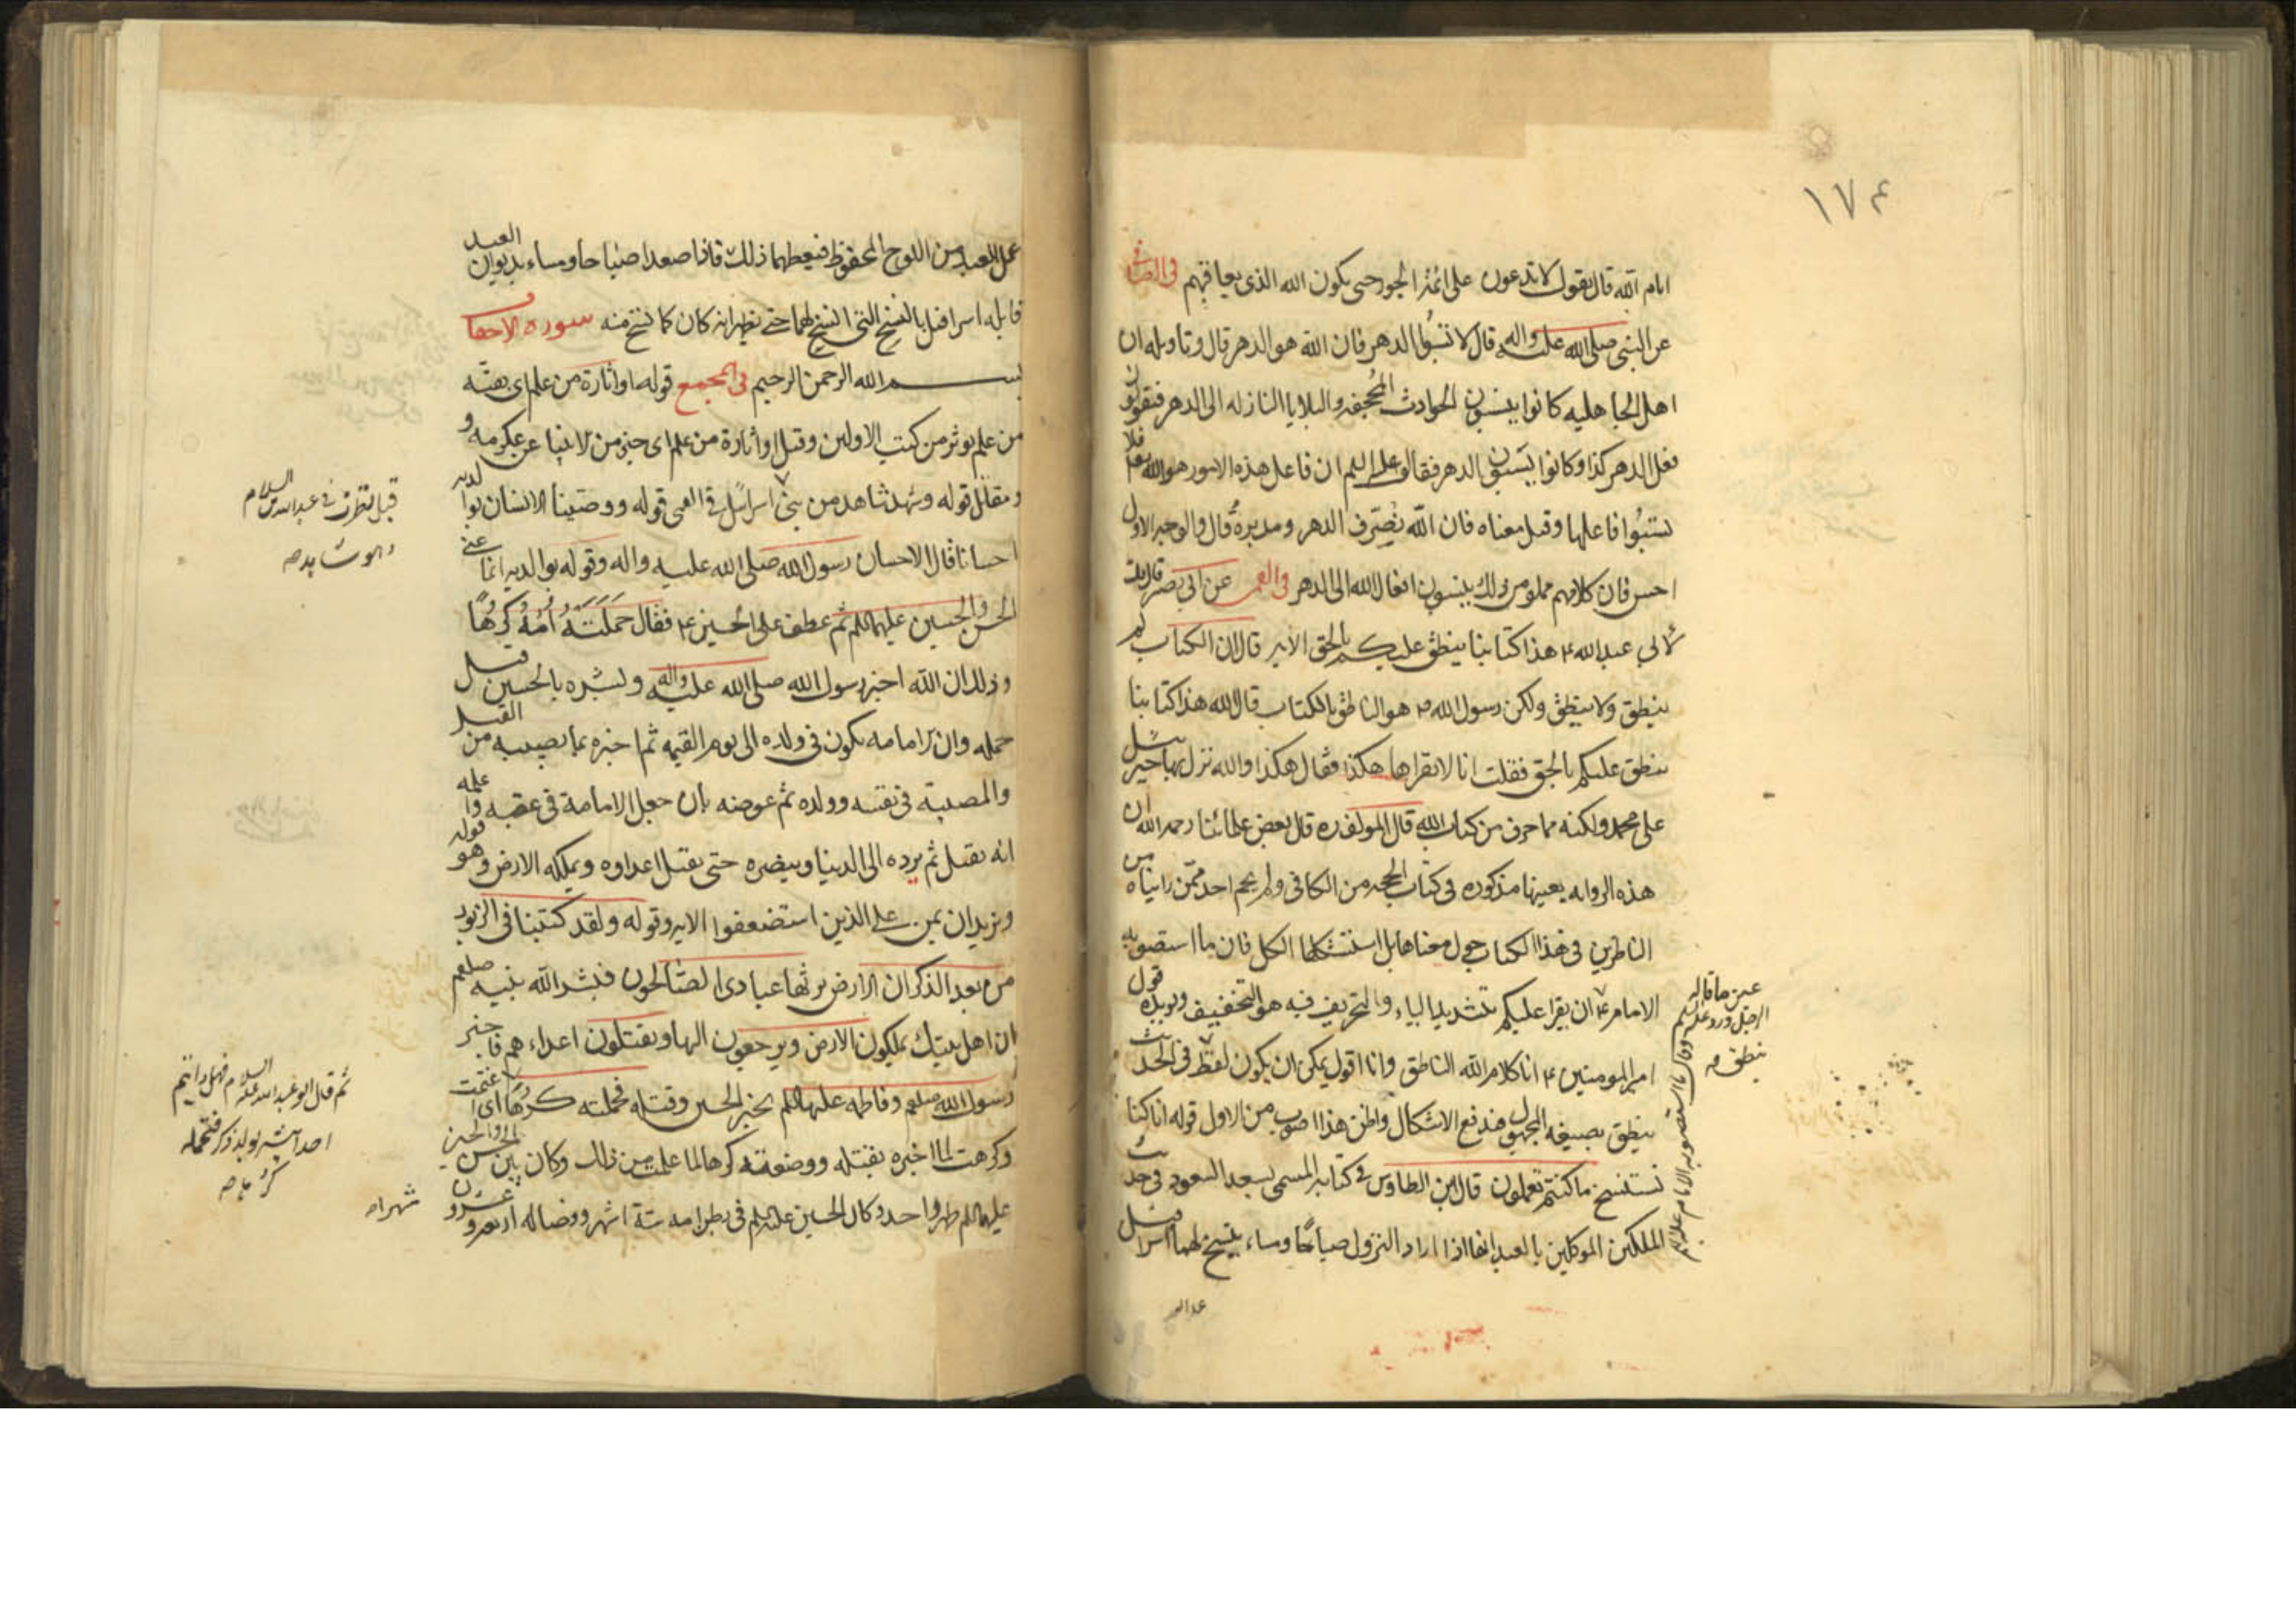 ١٧٤
ايام الله قال يقول لا تدعون على ائمة الجور حتى يكون الله الذى يعاقبهم فى
عن النبى صلى الله عليه واله قال لا تسبوا الدهر فان الله هو الدهر قال وتاويله ان
اهل الجاهليه كانوا ينسبون الحوادث المجحفه والبلايا النازله الى الدهر فيقولون
فعل الدهر كذا وكانوا يسبون الدهر فقال عليه السلم ان فاعل هذه الامور هو الله تعالى فلا
تسبوا فاعلها وقيل معناه فان الله يصرف الدهر ومدبره قال والوجه الاول
احسن فان كلامهم مملو من ذلك ينسبون افعال الله الى الدهر عن ابى بصير قال قلت
لابي عبد الله ع هذا كتابنا ينطق عليكم بالحق الايه قال ان الكتاب لم
ينطق ولا ينطق ولكن رسول الله ص هو الناطق بالكتاب قال الله هذا كتابنا
ينطق عليكم بالحق فقلت انا لا نقراها هكذا فقال هكذا والله نزل بها جبرئيل
على محمد ولكنه مما حرف من كتاب الله قال المولف ره قال بعض علمائنا رحمه الله ان
هذه الروايه بعينها مذكوره فى كتاب الحجه من الكافى ولم يحم احد ممن رايناه من
الناظرين فى هذا الكتاب حول معناها بل استشكلها الكل فان ما استصوبه
الامام ع ان يقرا عليكم بتشديد الياء والتحريف فيه هو التخفيف ويويده قول
امير المومنين ع انا كلام الله الناطق وانا اقول يمكن ان يكون لفظ فى الحديث
ينطق بصيغه المجهول فيندفع الاشكال واظن هذا اصوب من الاول قوله انا كنا
نستنسخ ما كنتم تعملون قال ابن الطاوس فى كتابه المسمى بسعد السعود فى حديث
الملكين الموكلين بالعبد انهما اذا ارادا النزول صباحا ومساء ينسخ لهما اسرافيل
عين ما قاله
ينطق
عمل العبد من اللوح المحفوظ فيعطيهما ذلك فاذا صعدا صباحا ومساء بديوان العبد
قابله اسرافيل بالنسخ التى انتسخ لهما حتى يظهر انه كان كما نسخ منه سوره الاحقاف
بسم الله الرحمن الرحيم فى المجمع قوله او اثارة من علم اى بقية
من علم يوثر من كتب الاولين وقيل او اثارة من علم اى خبر من الانبيا عن عكرمه و
مقاتل قوله وشهد شاهد من بنى اسرائيل فى القمى قوله ووصينا الانسان بوالديه
احسانا قال الاحسان رسول الله صلى الله عليه واله وقوله بوالديه انما عنى
الحسن والحسين عليهما السلم ثم عطف على الحسين ع فقال حملته امه كرها
وذلك ان الله اخبر رسول الله صلى الله عليه واله وبشره بالحسين قبل
حمله وان الامامه يكون فى ولده الى يوم القيمه ثم اخبره بما يصيبه من القتل
والمصيبة فى نفسه وولده ثم عوضه بان جعل الامامة فى عقبه واعلمه
انه يقتل ثم يرده الى الدنيا وينصره حتى يقتل اعداوه ويملكه الارض وهو قوله
ونريد ان نمن على الذين استضعفوا الايه وقوله ولقد كتبنا فى الزبور
من بعد الذكر ان الارض يرثها عبادى الصالحون فبشر الله نبيه صلعم
ان اهل بيتك يملكون الارض ويرجعون اليها ويقتلون اعداءهم فاخبر
رسول الله صلعم وفاطمه عليها السلم بخبر الحسين وقتله فحملته كرها اى اغتمت
وكرهت لما اخبره بقتله ووضعته كرها لما علمت من ذلك وكان بين الحسن والحسين
عليهما السلم طهر واحد وكان الحسين عليه السلم فى بطن امه ستة اشهر وفصاله اربعه وعشرون
ثم قال ابو عبد الله عليه السلام فهل رايتم
احدا يبشر بولد ذكر فتحمله
كرها
شهرا